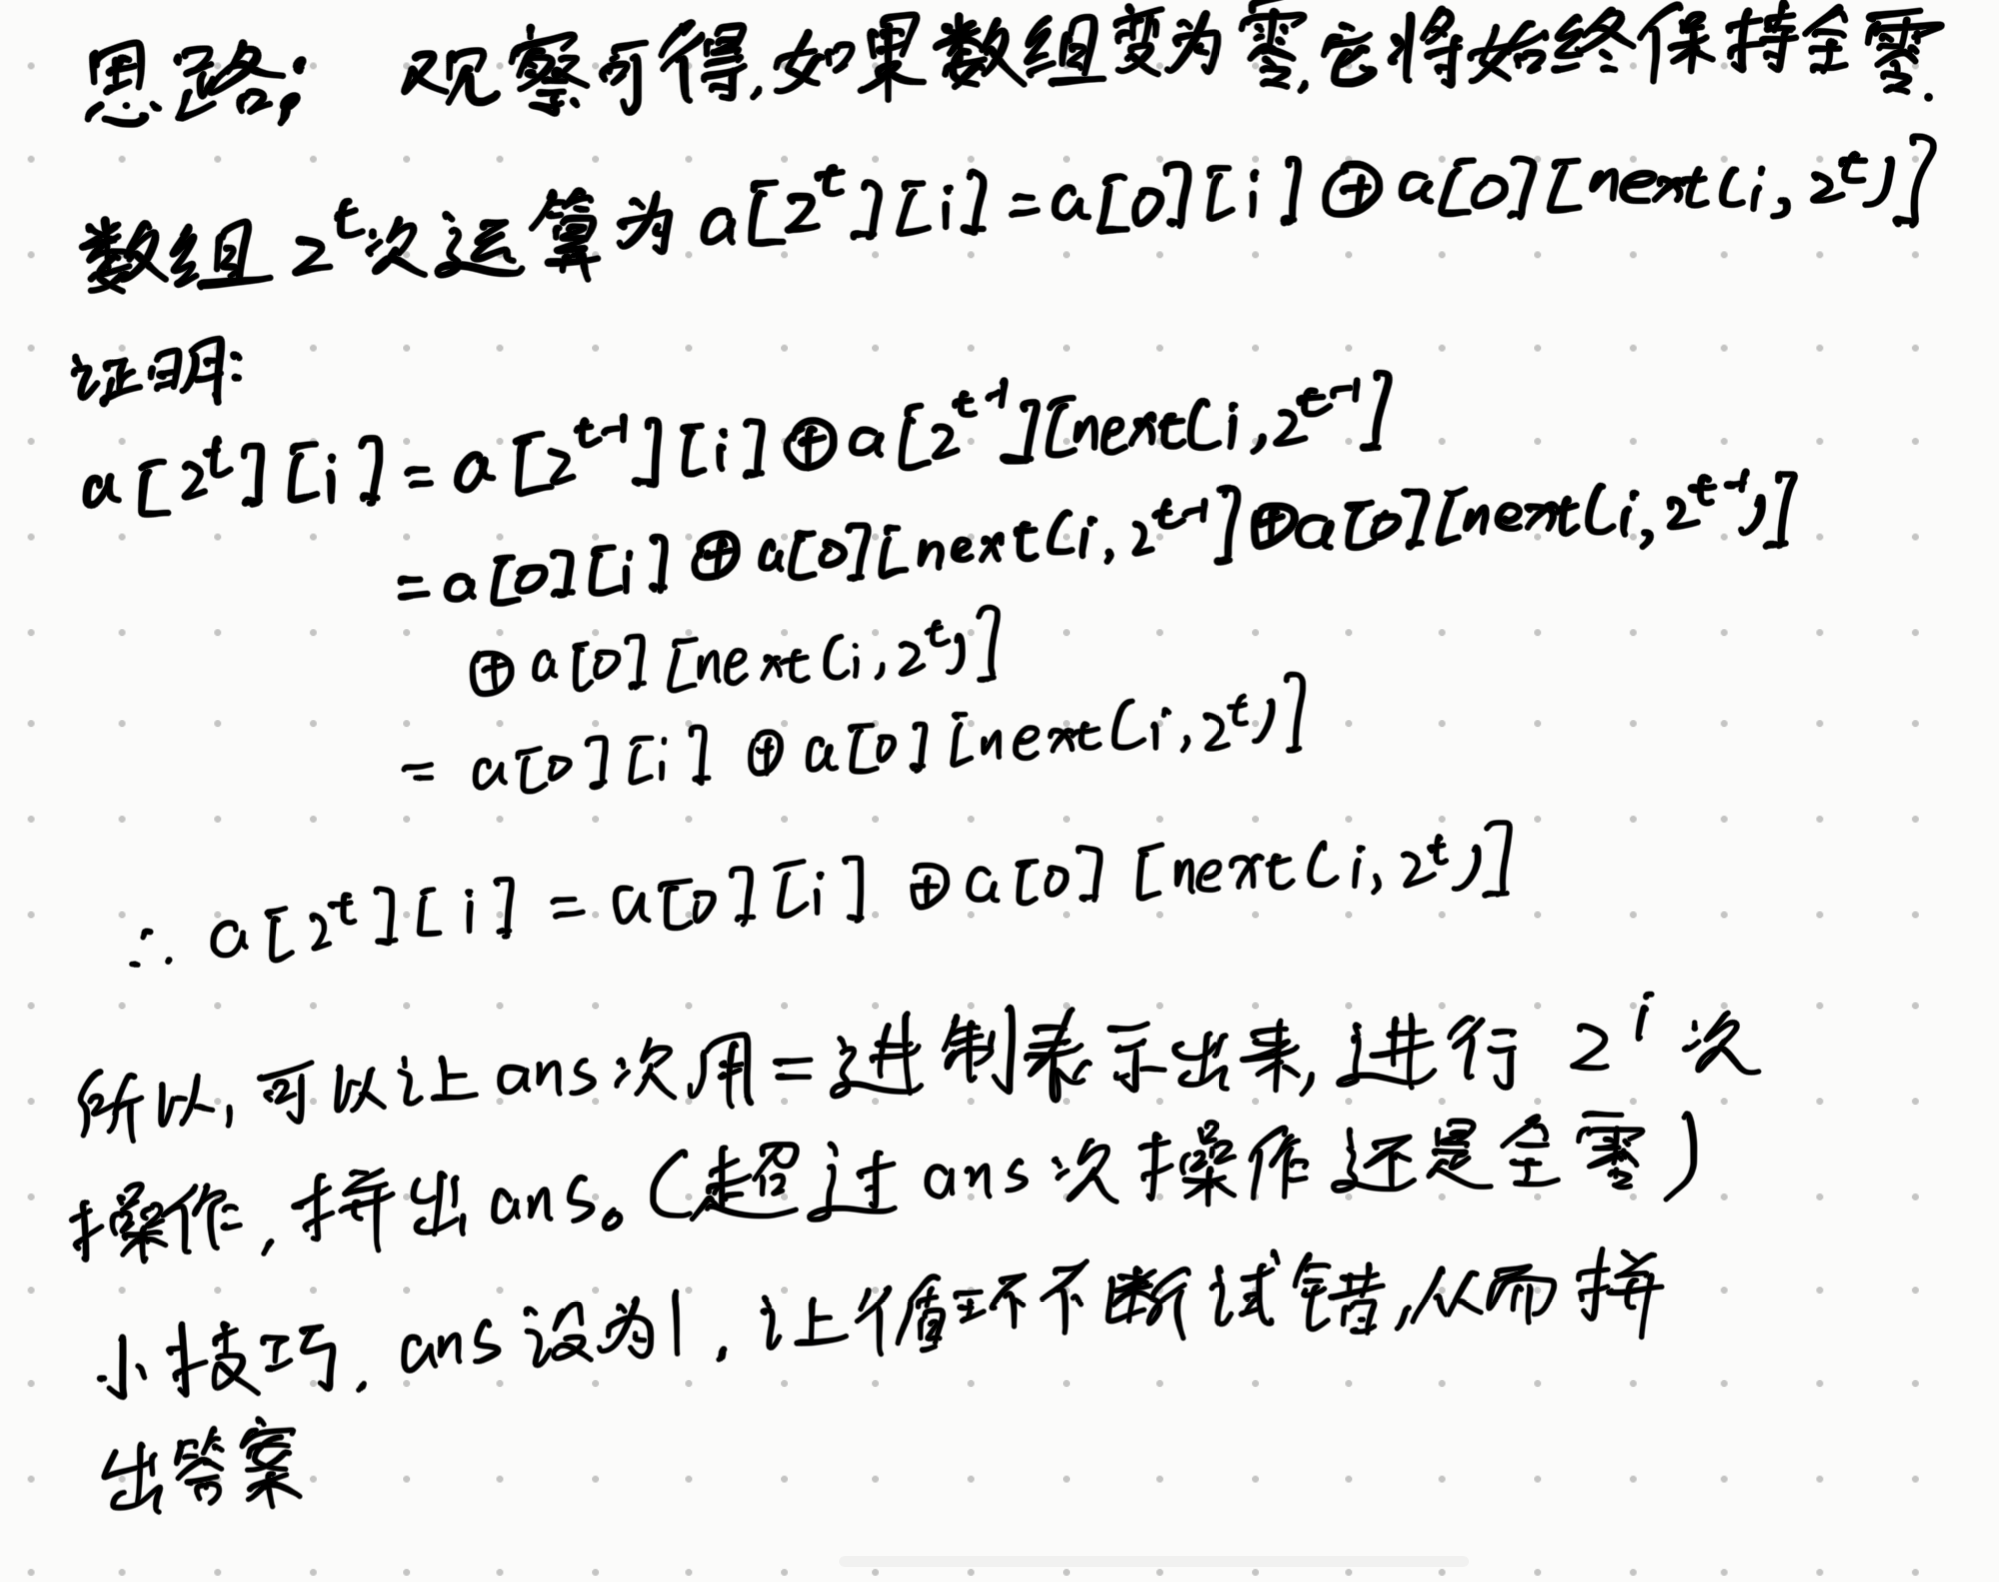 思路: 观察可得,如果数组变为零,它将始终保持全零.
数组 2^t次运算为 a[2^t][i]=a[0][i]⊕a[0][next(i,2^t)]
证明:
a[2^t][i]=a[2^t-1][i]⊕a[2^t-1][next(i,2^t-1]
=a[0][i]⊕a[0][next(i,2^t-1]⊕a[0][next(i,2^t-1)]
⊕a[0][next(i,2^t)]
= a[0][i] ⊕a[0][next(i,2^t)]
∴ a[2^t][i] = a[0][i] ⊕a[0][next(i,2^t)]
所以,可以让ans次用二进制表示出来,进行 2^i 次
操作,拼出ans。(超过ans次操作还是全零)
小技巧,ans设为1,让循环不断试错,从而拼
出答案